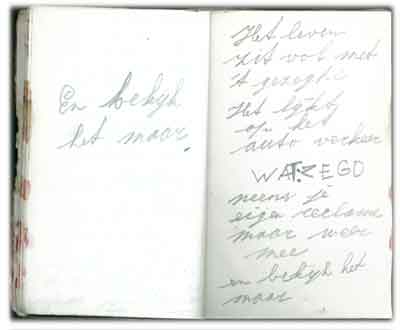 En bekijk
het maar.
Het leven
zit vol met
't gezegde
Het lijkt
op het
auto verkeer
WAT ZEGO
neem je
eigen reclame
maar weer
mee
en bekijk het
maar